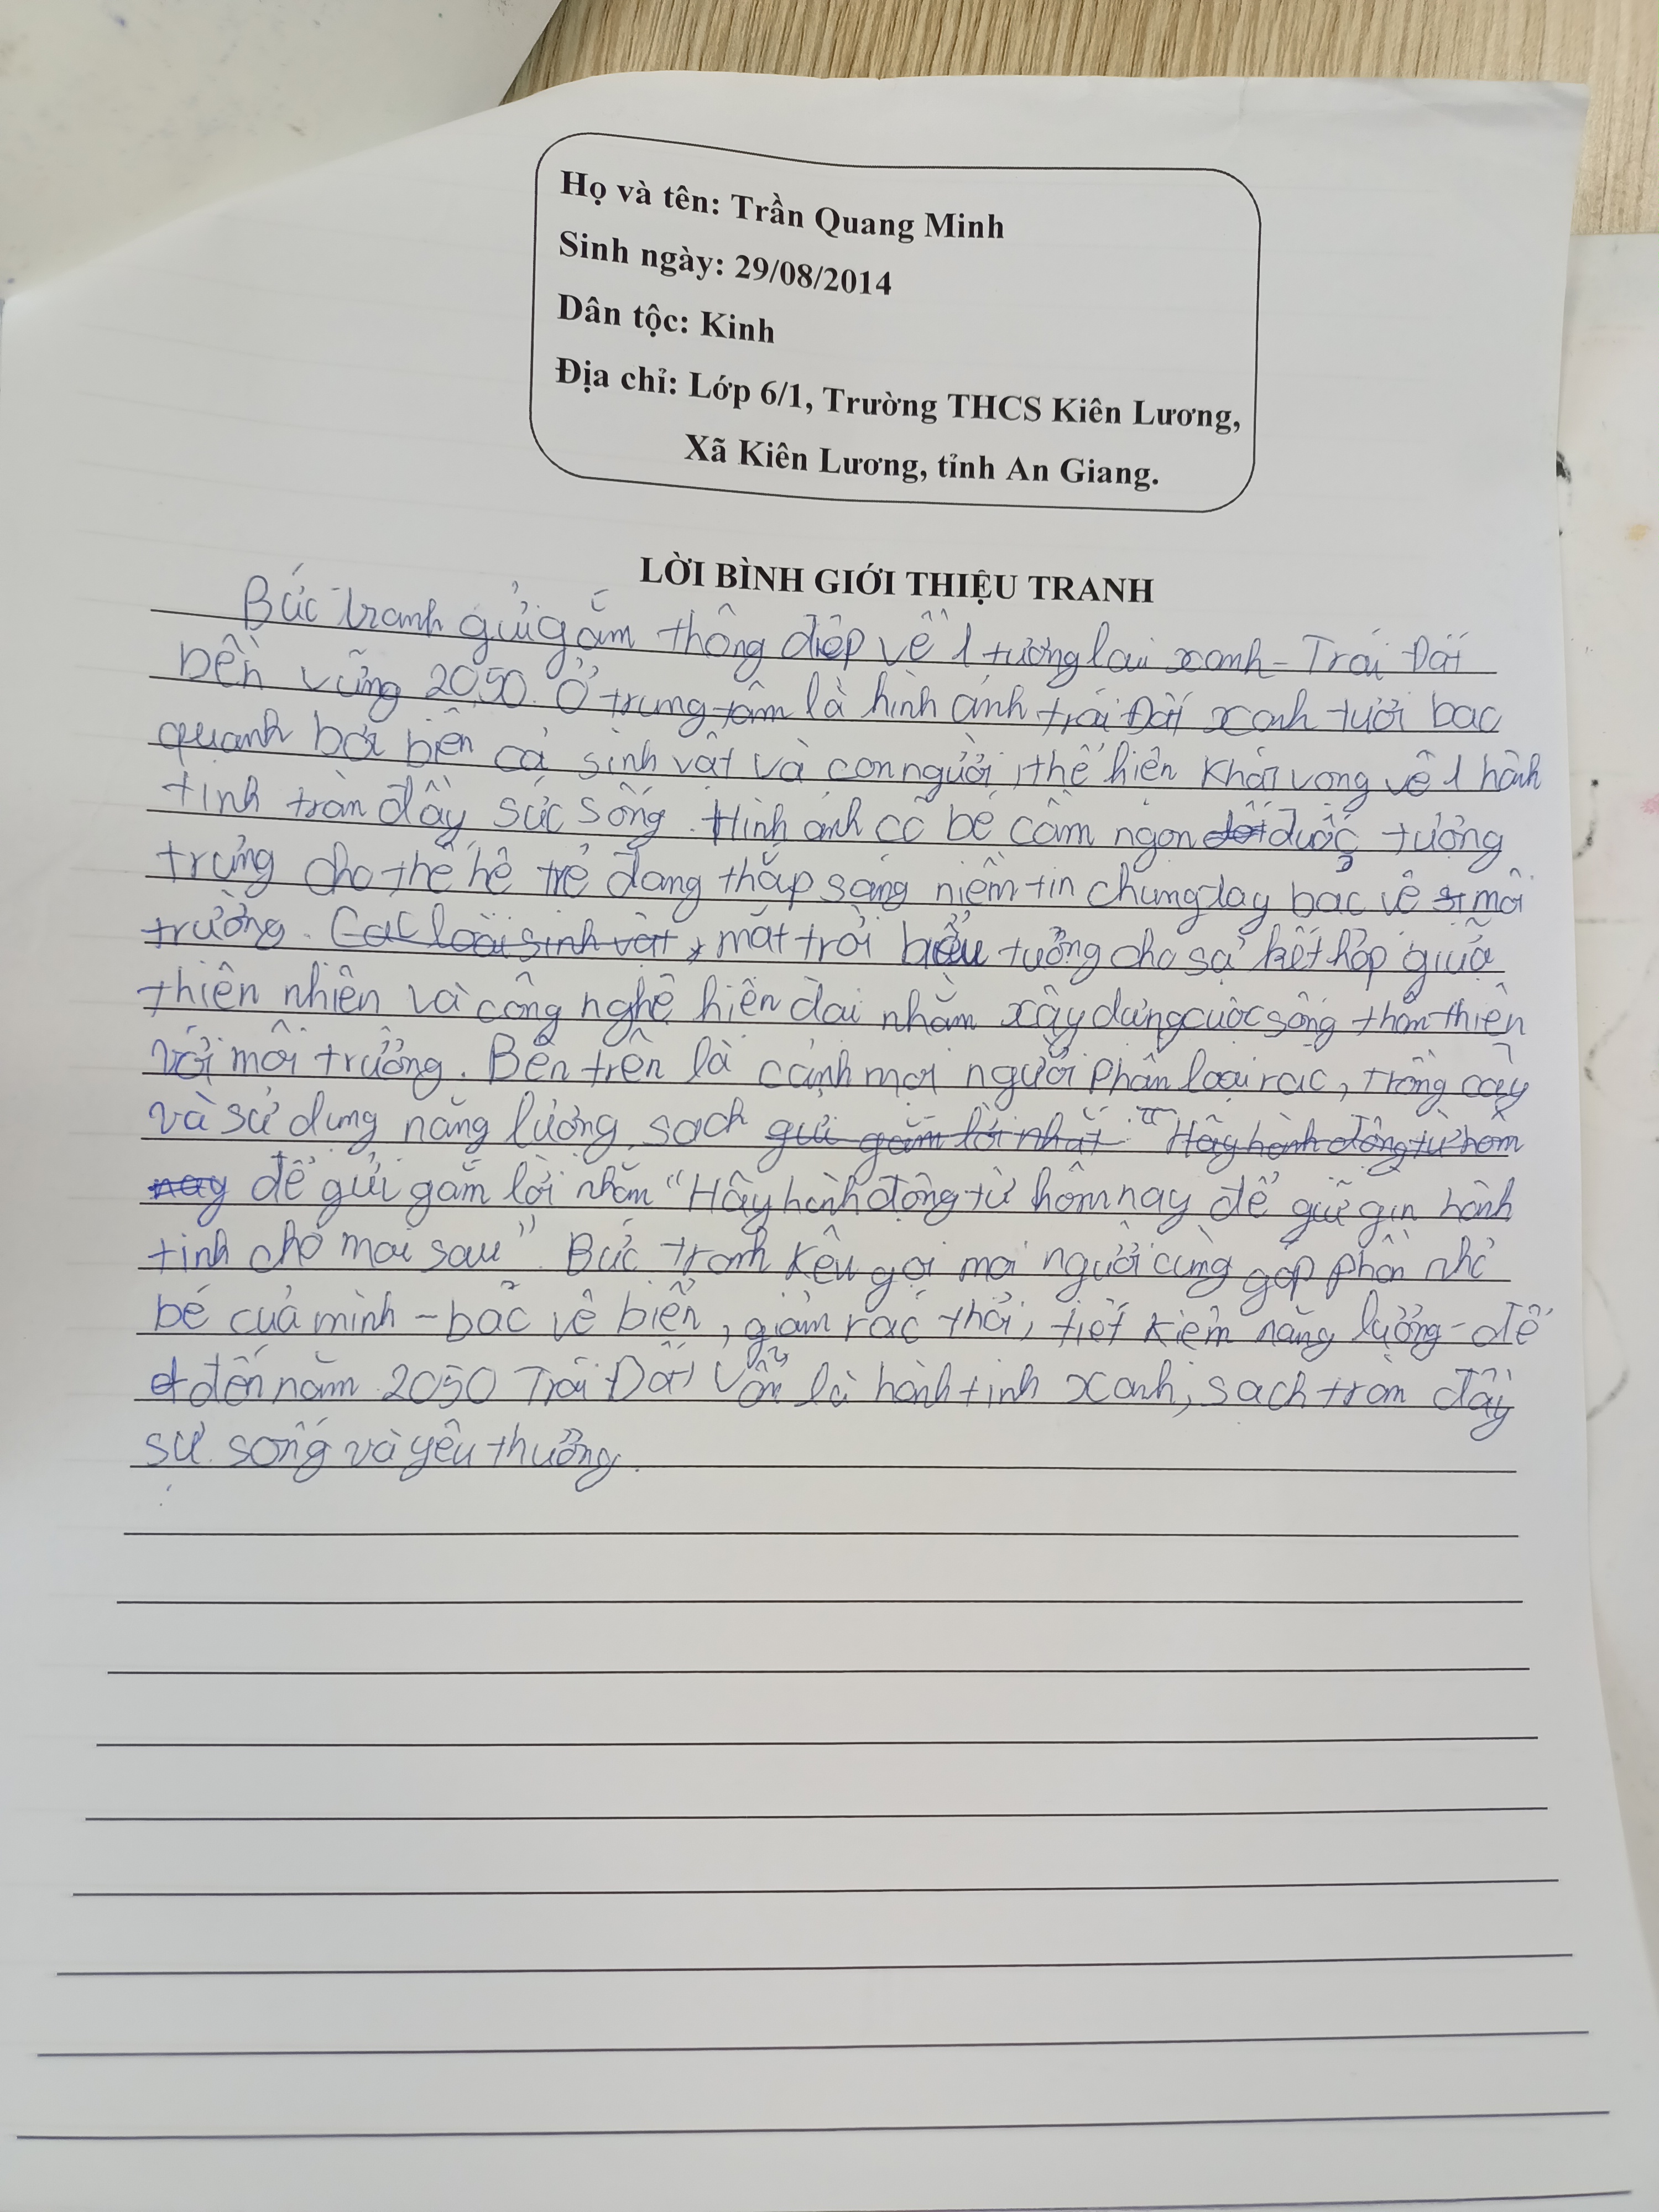 Họ và tên: Trần Quang Minh
Sinh ngày: 29/08/2014
Dân tộc: Kinh
Địa chỉ: Lớp 6/1, Trường THCS Kiên Lương,
Xã Kiên Lương, tỉnh An Giang.
LỜI BÌNH GIỚI THIỆU TRANH
Bức tranh gửi gắm thông điệp về 1 tương lai xanh - Trái Đất
bền vững 2050. Ở trung tâm là hình ảnh trái Đất xanh tươi bao
quanh bởi biển cả sinh vật và con người, thể hiện khát vọng về 1 hành
tinh tràn đầy sức sống. Hình ảnh cô bé cầm ngọn đuốc tượng
trưng cho thế hệ trẻ đang thắp sáng niềm tin chung tay bảo vệ môi
trường. Các loài sinh vật, mặt trời biểu tượng cho sự kết hợp giữa
thiên nhiên và công nghệ hiện đại nhằm xây dựng cuộc sống thân thiện
với môi trường. Bên trên là cảnh mọi người phân loại rác, trồng cây
và sử dụng năng lượng sạch gửi gắm lời nhắ "Hãy hành động từ hôm
nay để gửi gắm lời nhắn "Hãy hành động từ hôm nay để giữ gìn hành
tinh cho mai sau". Bức tranh kêu gọi mọi người cùng góp phần nhỏ
bé của mình - bảo vệ biển, giảm rác thải, tiết kiệm năng lượng - để
đến năm 2050 Trái Đất vẫn là hành tinh xanh, sạch tràn đầy
sự sống và yêu thương.